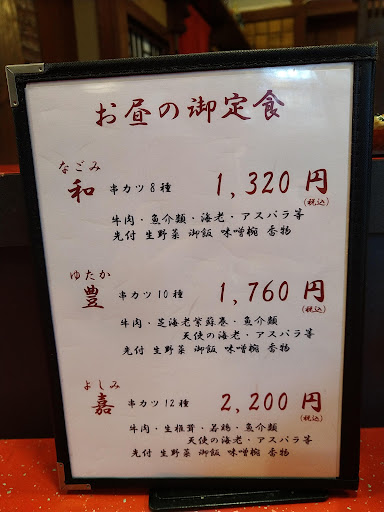 お昼の御定食
なごみ
和 串カツ8種 1,320円
(税込)
牛肉・魚介類・海老・アスパラ等
先付 生野菜 御飯 味噌椀 香物
ゆたか
豊 串カツ10種 1,760円
(税込)
牛肉・芝海老紫蘇巻・魚介類
天使の海老・アスパラ等
先付 生野菜 御飯 味噌椀 香物
よしみ
嘉 串カツ12種 2,200円
(税込)
牛肉・生椎茸・若鶏・魚介類
天使の海老・アスパラ等
先付 生野菜 御飯 味噌椀 香物